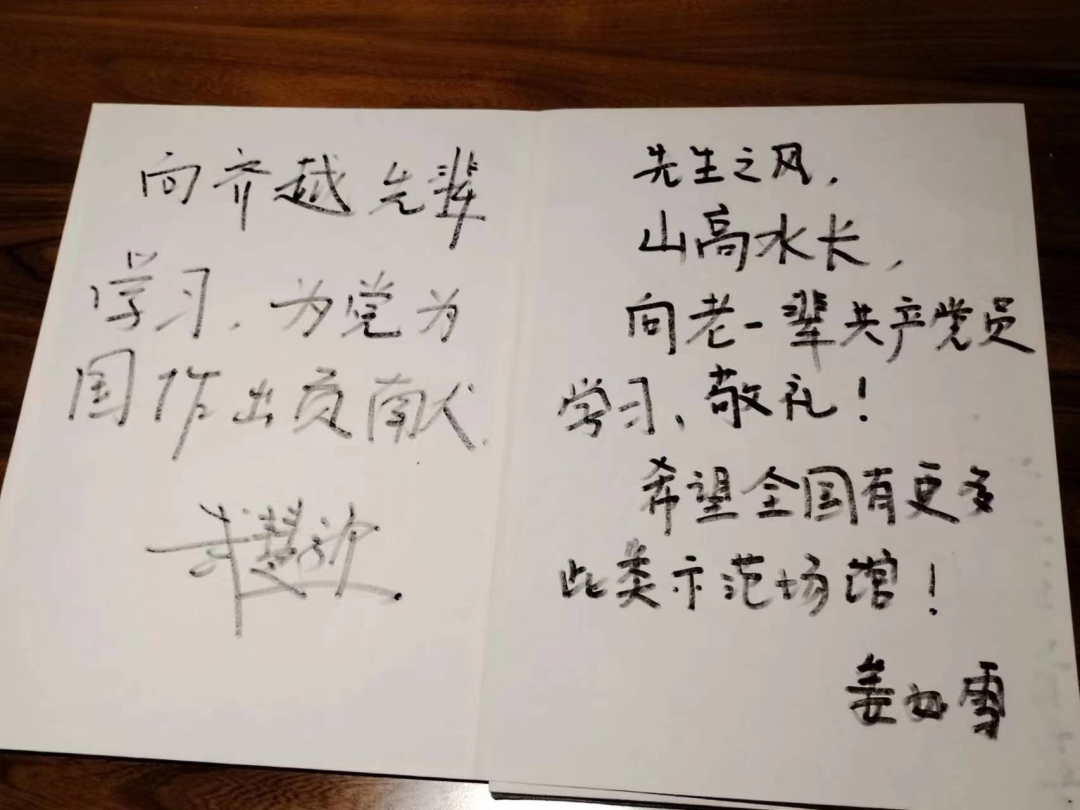 向齐越先辈
学习，为党为
国作出贡献.
先生之风，
山高水长，
向老一辈共产党员
学习、敬礼！
希望全国有更多
此类示范场馆！
姜如雪